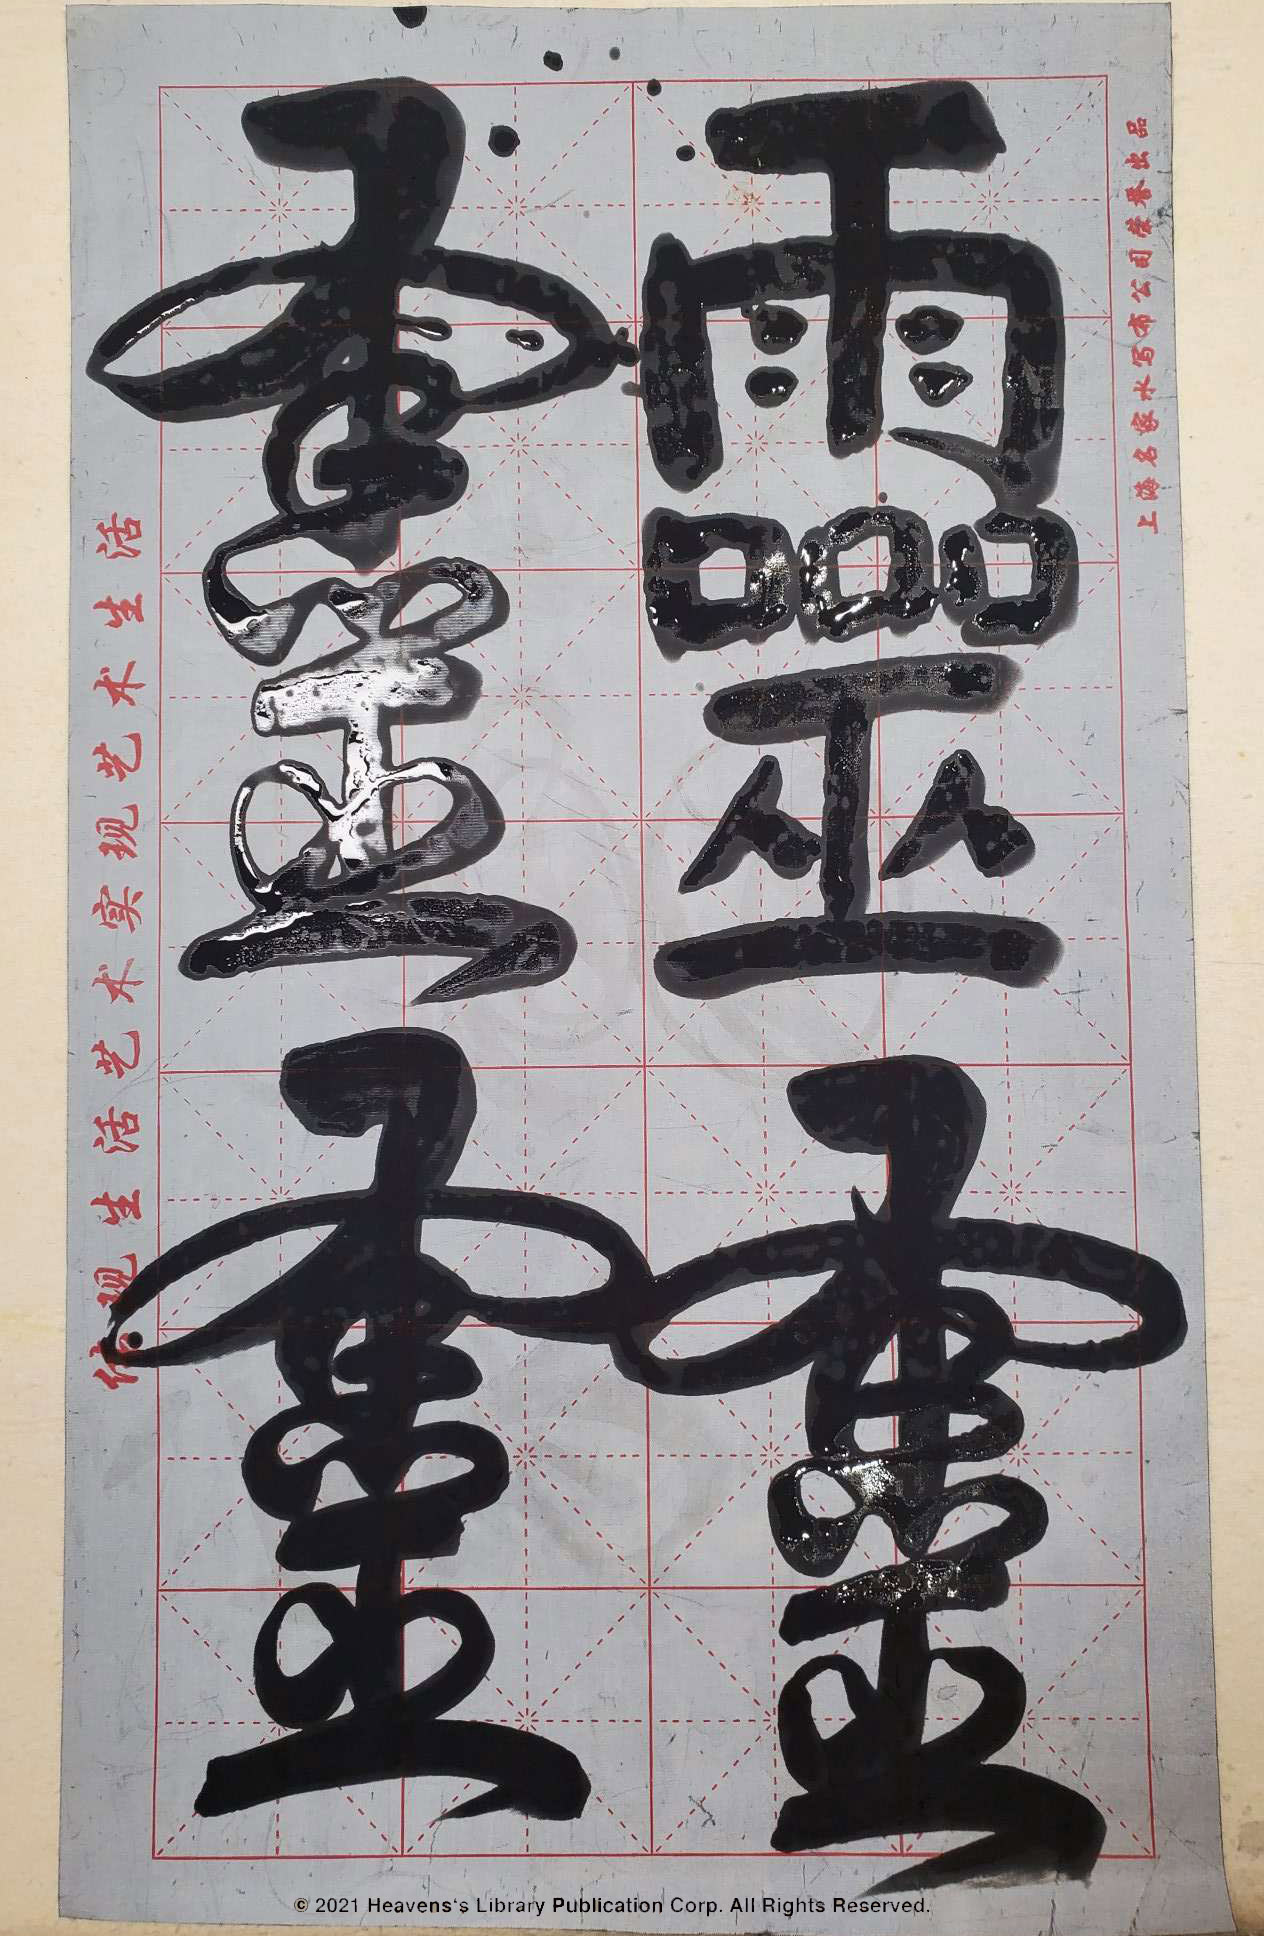 上海名家水写布公司荣誉出品
靈靈
靈靈
体现生活艺术实现艺术生活
© 2021 Heavens's Library Publication Corp. All Rights Reserved.